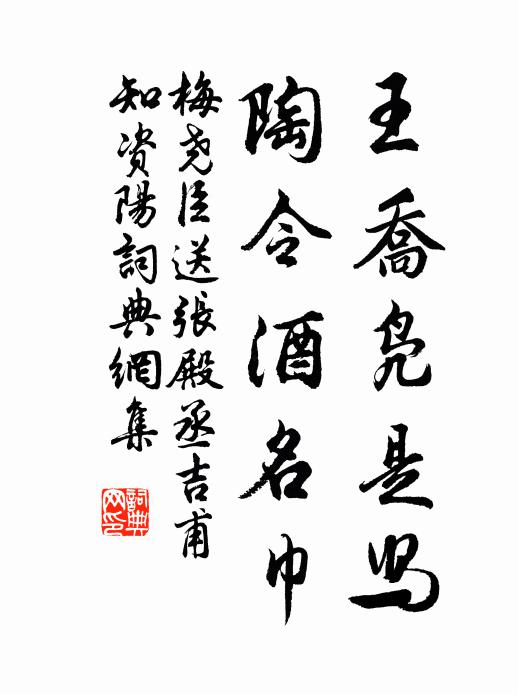 王喬鳧是舄
陶令酒名巾
梅尧臣送張殿丞吉甫
知資陽詞典網集
詞典
网印